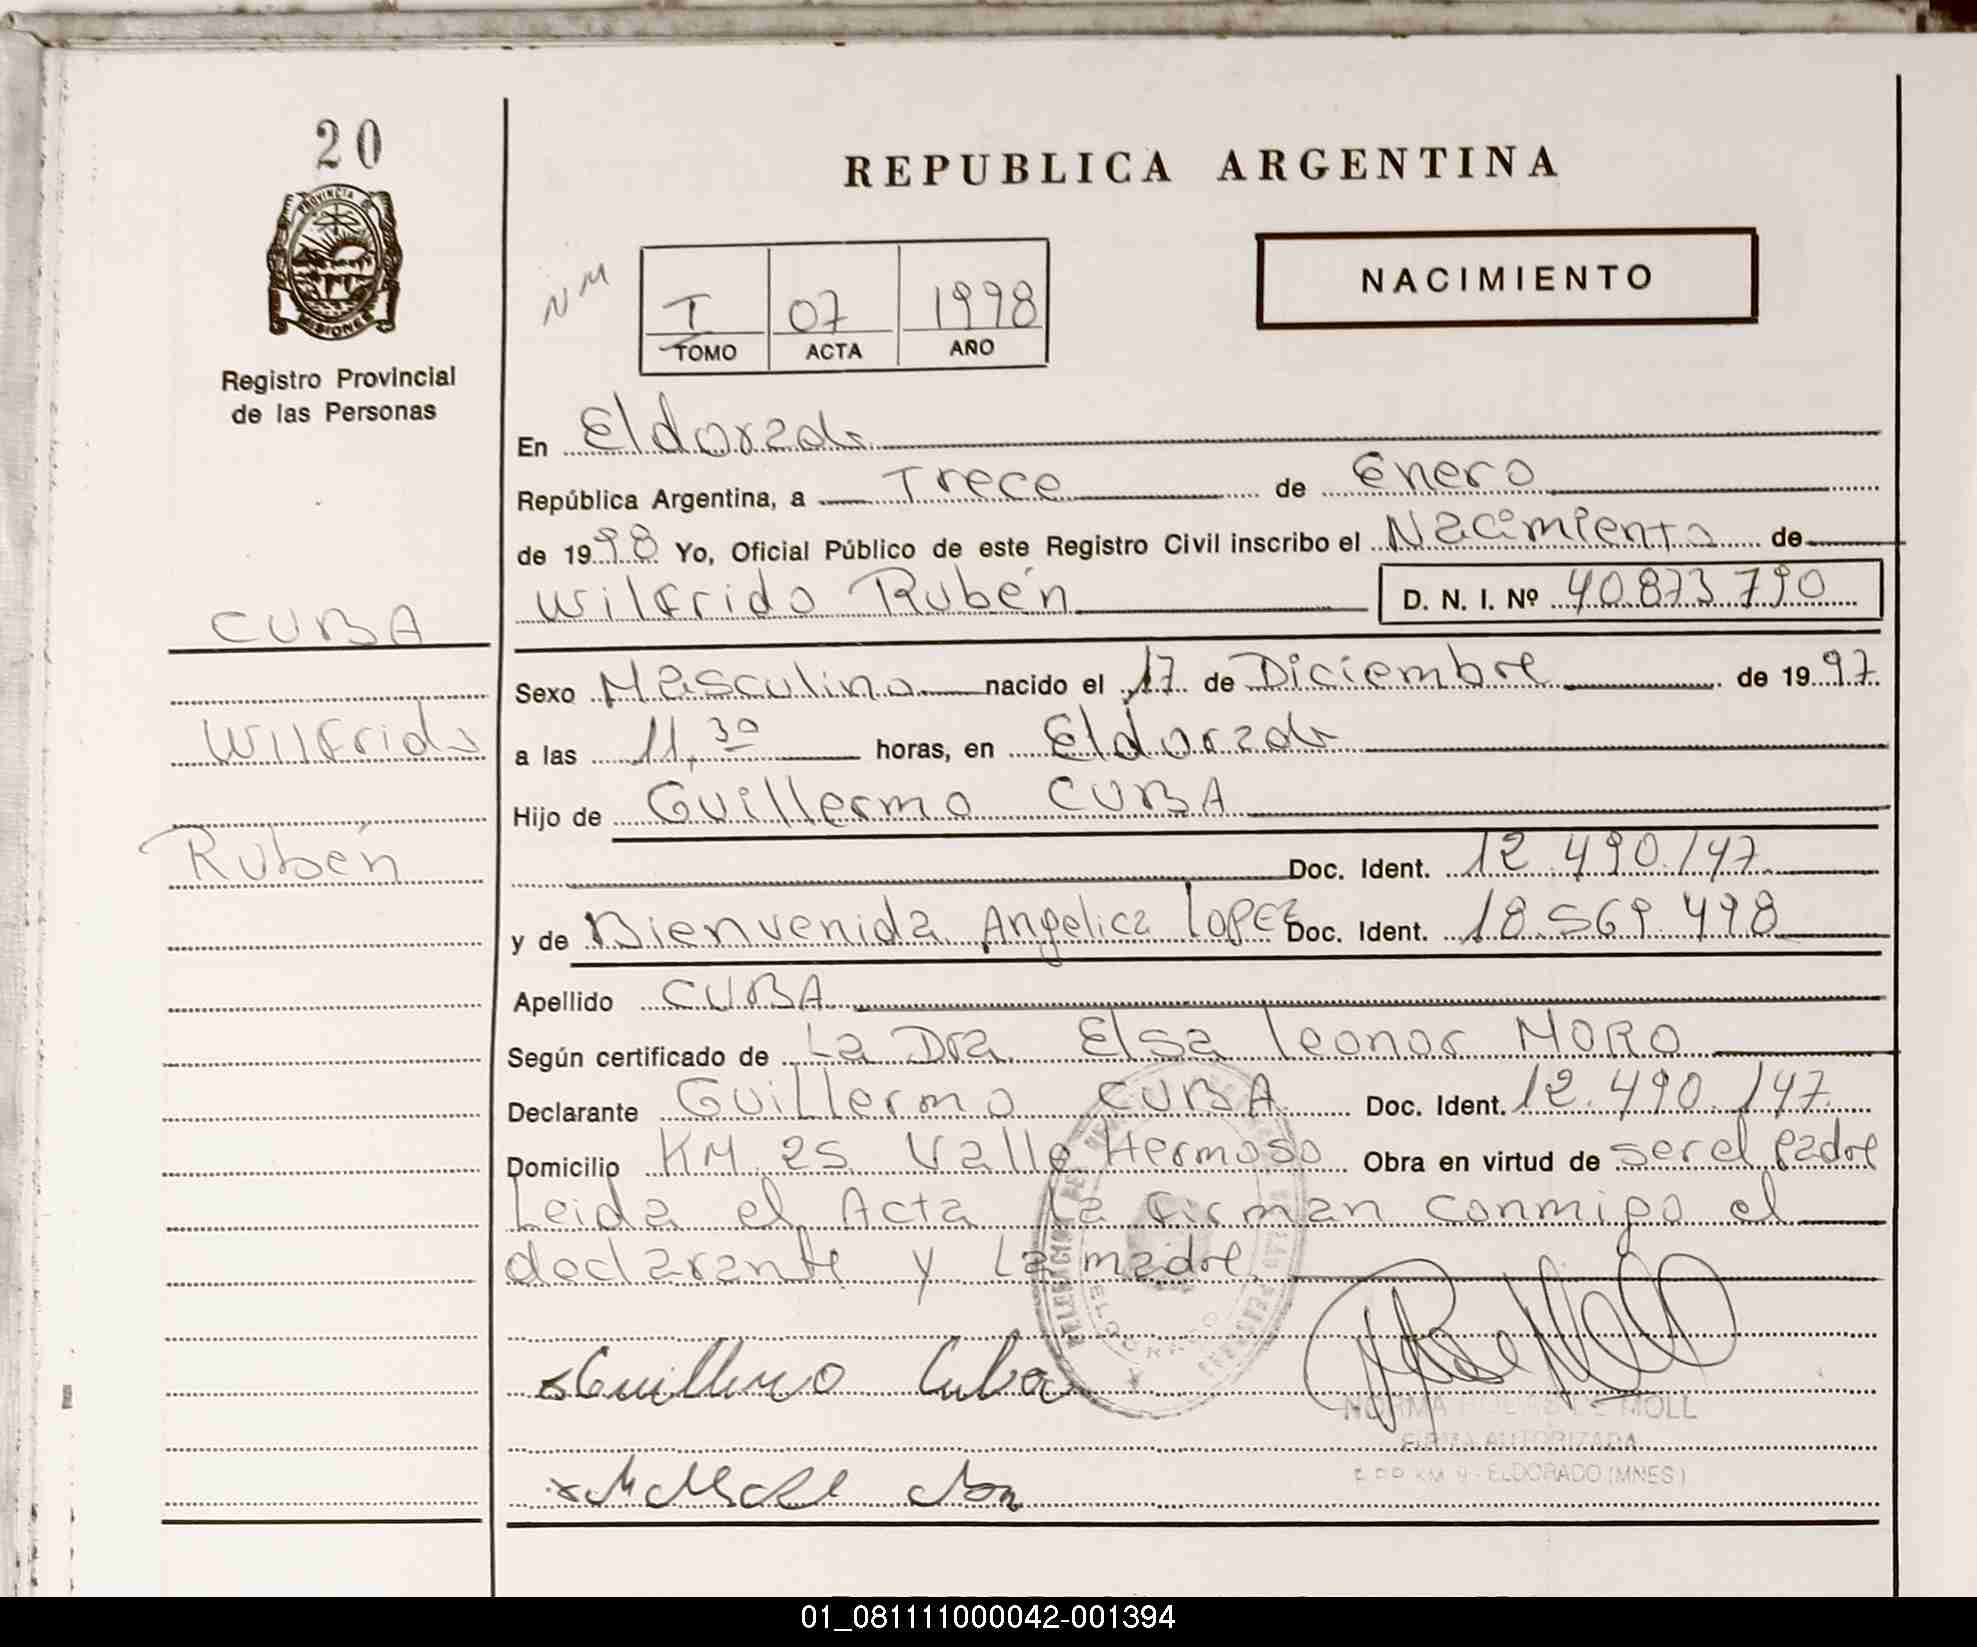 20
PROVINCIA DE
MISIONES
Registro Provincial
de las Personas
REPUBLICA ARGENTINA
NM
I 07 1998
TOMO ACTA AÑO
NACIMIENTO
En Eldorado
República Argentina, a Trece de Enero
de 1998 Yo, Oficial Público de este Registro Civil inscribo el Nacimiento de
Wilfrido Rubén D. N. I. Nº 40.873.790
CUBA
Wilfrido
Rubén
Sexo Masculino nacido el 17 de Diciembre de 1997
a las 11,30 horas, en Eldorado
Hijo de Guillermo CUBA
Doc. Ident. 12.490.147
y de Bienvenida Angelica Lopez Doc. Ident. 18.569.498
Apellido CUBA
Según certificado de La Dra. Elsa Leonor MORO
Declarante Guillermo CUBA Doc. Ident. 12.490.147
Domicilio KM 25 Valle Hermoso Obra en virtud de ser el padre
Leida el Acta la firman conmigo el
declarante y la madre
Guillermo Cuba
ELDORADO
NORMA DE MOLL
FIRMA AUTORIZADA
KM 9 - ELDORADO (MNES)
01_081111000042-001394